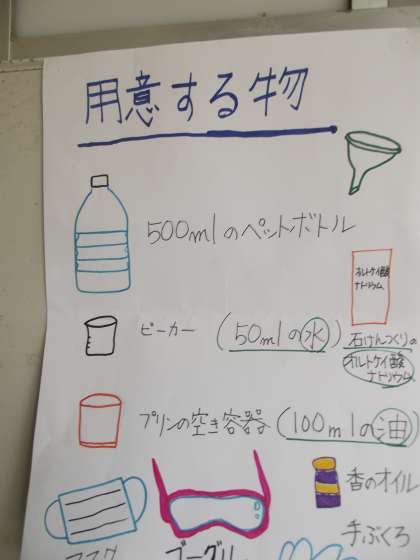 用意する物
500mlのペットボトル
オルトケイ酸
ナトリウム
ビーカー (50mlの水)
石けんづくりの
オルトケイ酸
ナトリウム
プリンの空き容器 (100mlの油)
香のオイル
マスク
ゴーグル
手ぶくろ